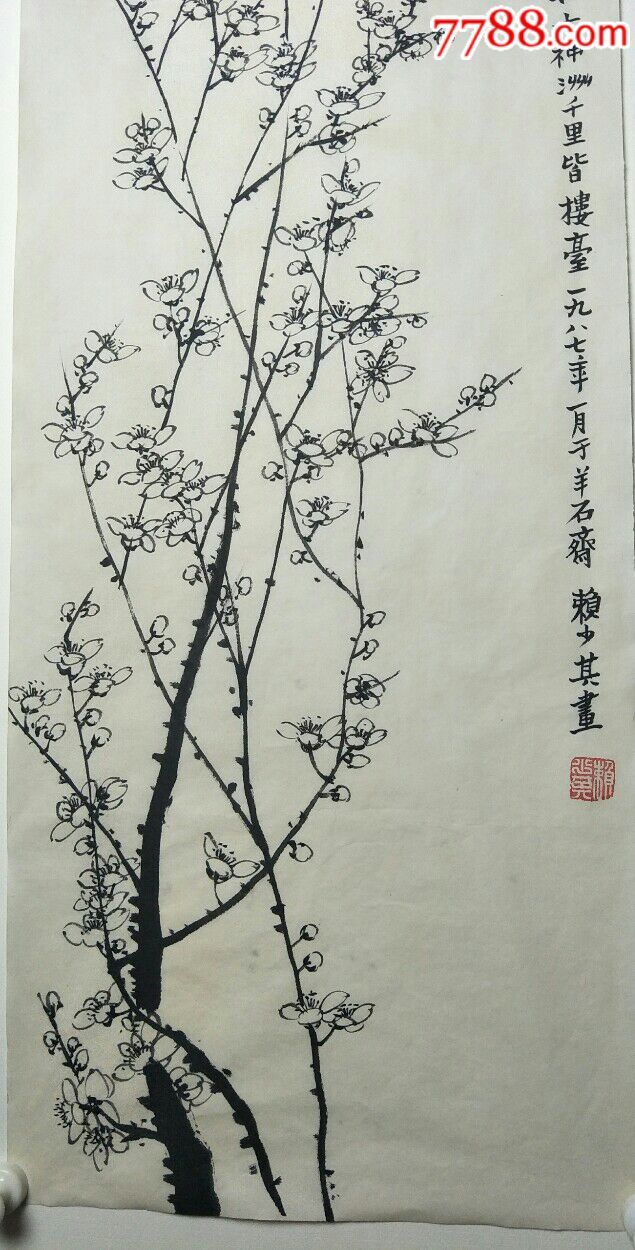 7788.com
神洲千里皆樓臺一九八七年一月于羊石齋賴少其畫
賴少其